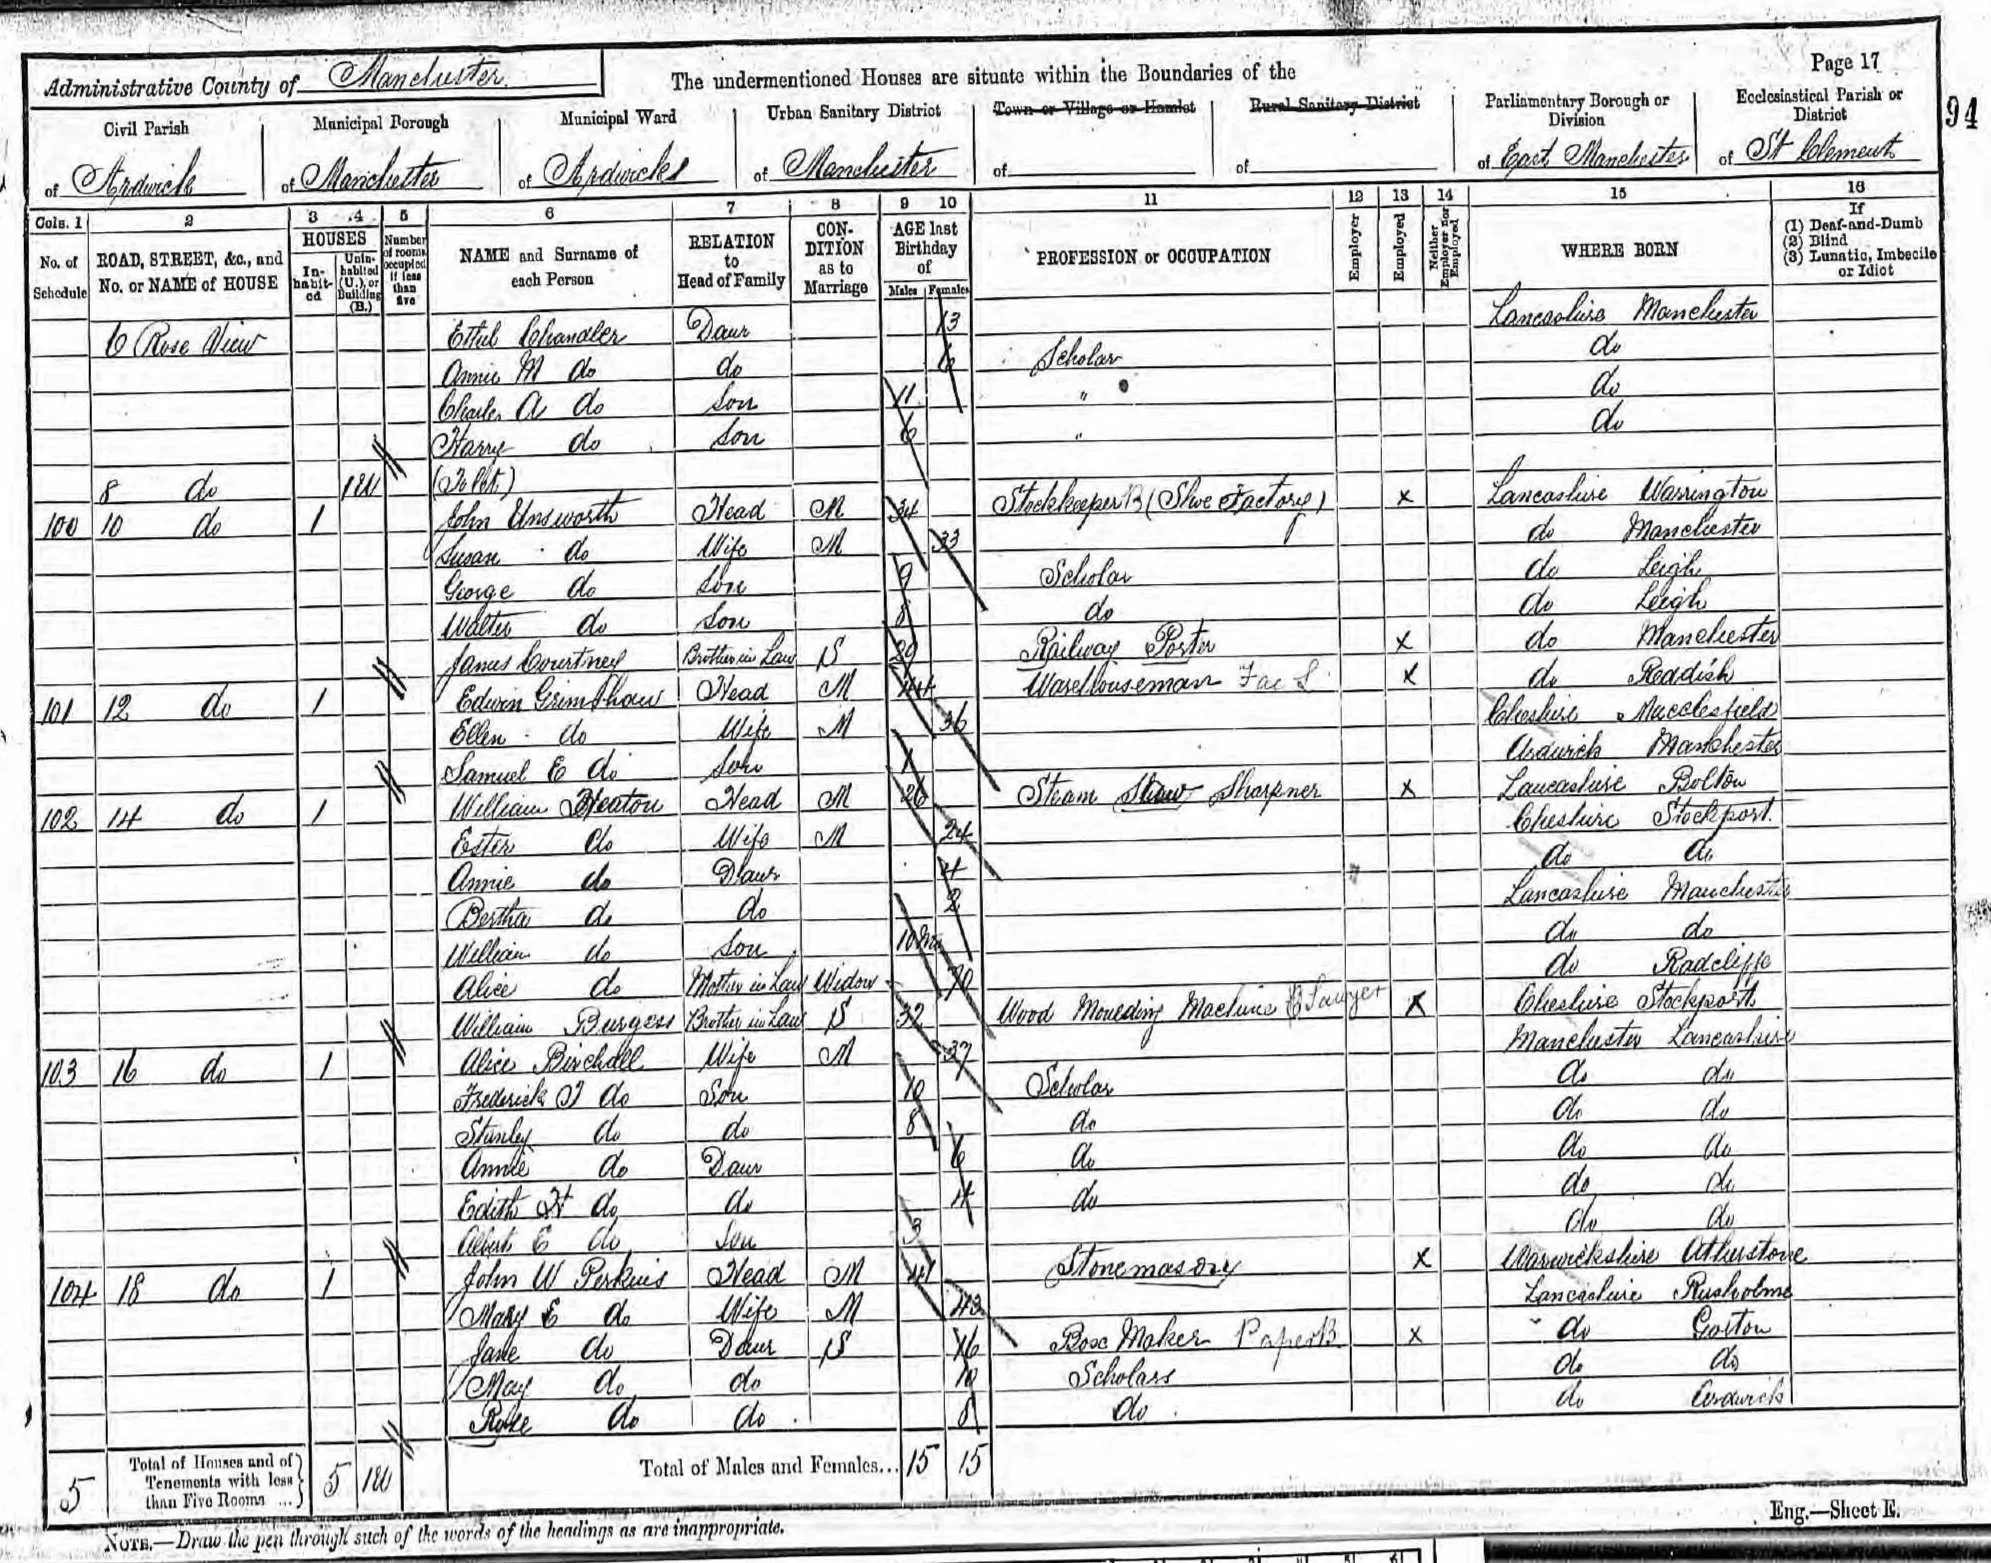 Page 17
94
Administrative County of Manchester. The undermentioned Houses are situate within the Boundaries of the
Civil Parish Municipal Borough Municipal Ward Urban Sanitary District Town or Village or Hamlet Rural Sanitary District Parliamentary Borough or Division Ecclesiastical Parish or District
of Ardwick of Manchester of Ardwick of Manchester of of of East Manchester of St Clement
Cols. 1 2 3 4 5 6 7 8 9 10 11 12 13 14 15 16
No. of Schedule ROAD, STREET, &c., and No. or NAME of HOUSE HOUSES In-habit-ed Unin-habited (U.), or Building (B.) Number of rooms occupied if less than five NAME and Surname of each Person RELATION to Head of Family CON-DITION as to Marriage AGE last Birthday of Males Females PROFESSION or OCCUPATION Employer Employed Neither Employer nor Employed WHERE BORN If (1) Deaf-and-Dumb (2) Blind (3) Lunatic, Imbecile or Idiot
6 Rose View Ethel Chandler Daur 13 Lancashire Manchester
Annie M do do Scholar do
Charles A do Son 11 " do
Harry do Son 6 " do
8 do 1 (To let)
100 10 do 1 John Unsworth Head M 34 Stockkeeper B (Shoe Factory) x Lancashire Warrington
Susan do Wife M 33 do Manchester
George do Son 9 Scholar do Leigh
Walter do Son 8 do do Leigh
James Courtney Brother in Law S 20 Railway Porter x do Manchester
101 12 do 1 Edwin Grimshaw Head M 44 Warehouseman x do Reddish
Ellen do Wife M 36 Cheshire Macclesfield
Samuel E do Son 1 Ardwick Manchester
102 14 do 1 William Heaton Head M 26 Steam Saw Sharpner x Lancashire Bolton
Ester do Wife M 24 Cheshire Stockport
Annie do Daur 4 do do
Bertha do do 2 Lancashire Manchester
William do Son 10 Mo do do
Alice do Mother in Law Widow 70 do Radcliffe
William Burgess Brother in Law S 32 Wood Moulding Machine Sawyer x Cheshire Stockport
103 16 do 1 Alice Birchall Wife M 37 Manchester Lancashire
Frederick J do Son 10 Scholar do do
Stanley do do 8 do do do
Annie do Daur 6 do do do
Edith H do do 4 do do do
Albert E do Son 3 do do
104 18 do 1 John W Perkins Head M 41 Stonemason x Warwickshire Atherstone
Mary E do Wife M 43 Lancashire Rusholme
Jane do Daur S 16 Box Maker Paper B x do Gorton
May do do 10 Scholars do do
Rose do do 8 do do Ardwick
5 Total of Houses and of Tenements with less than Five Rooms ... 5 Total of Males and Females... 15 15
NOTE.—Draw the pen through such of the words of the headings as are inappropriate.
Eng.—Sheet E.